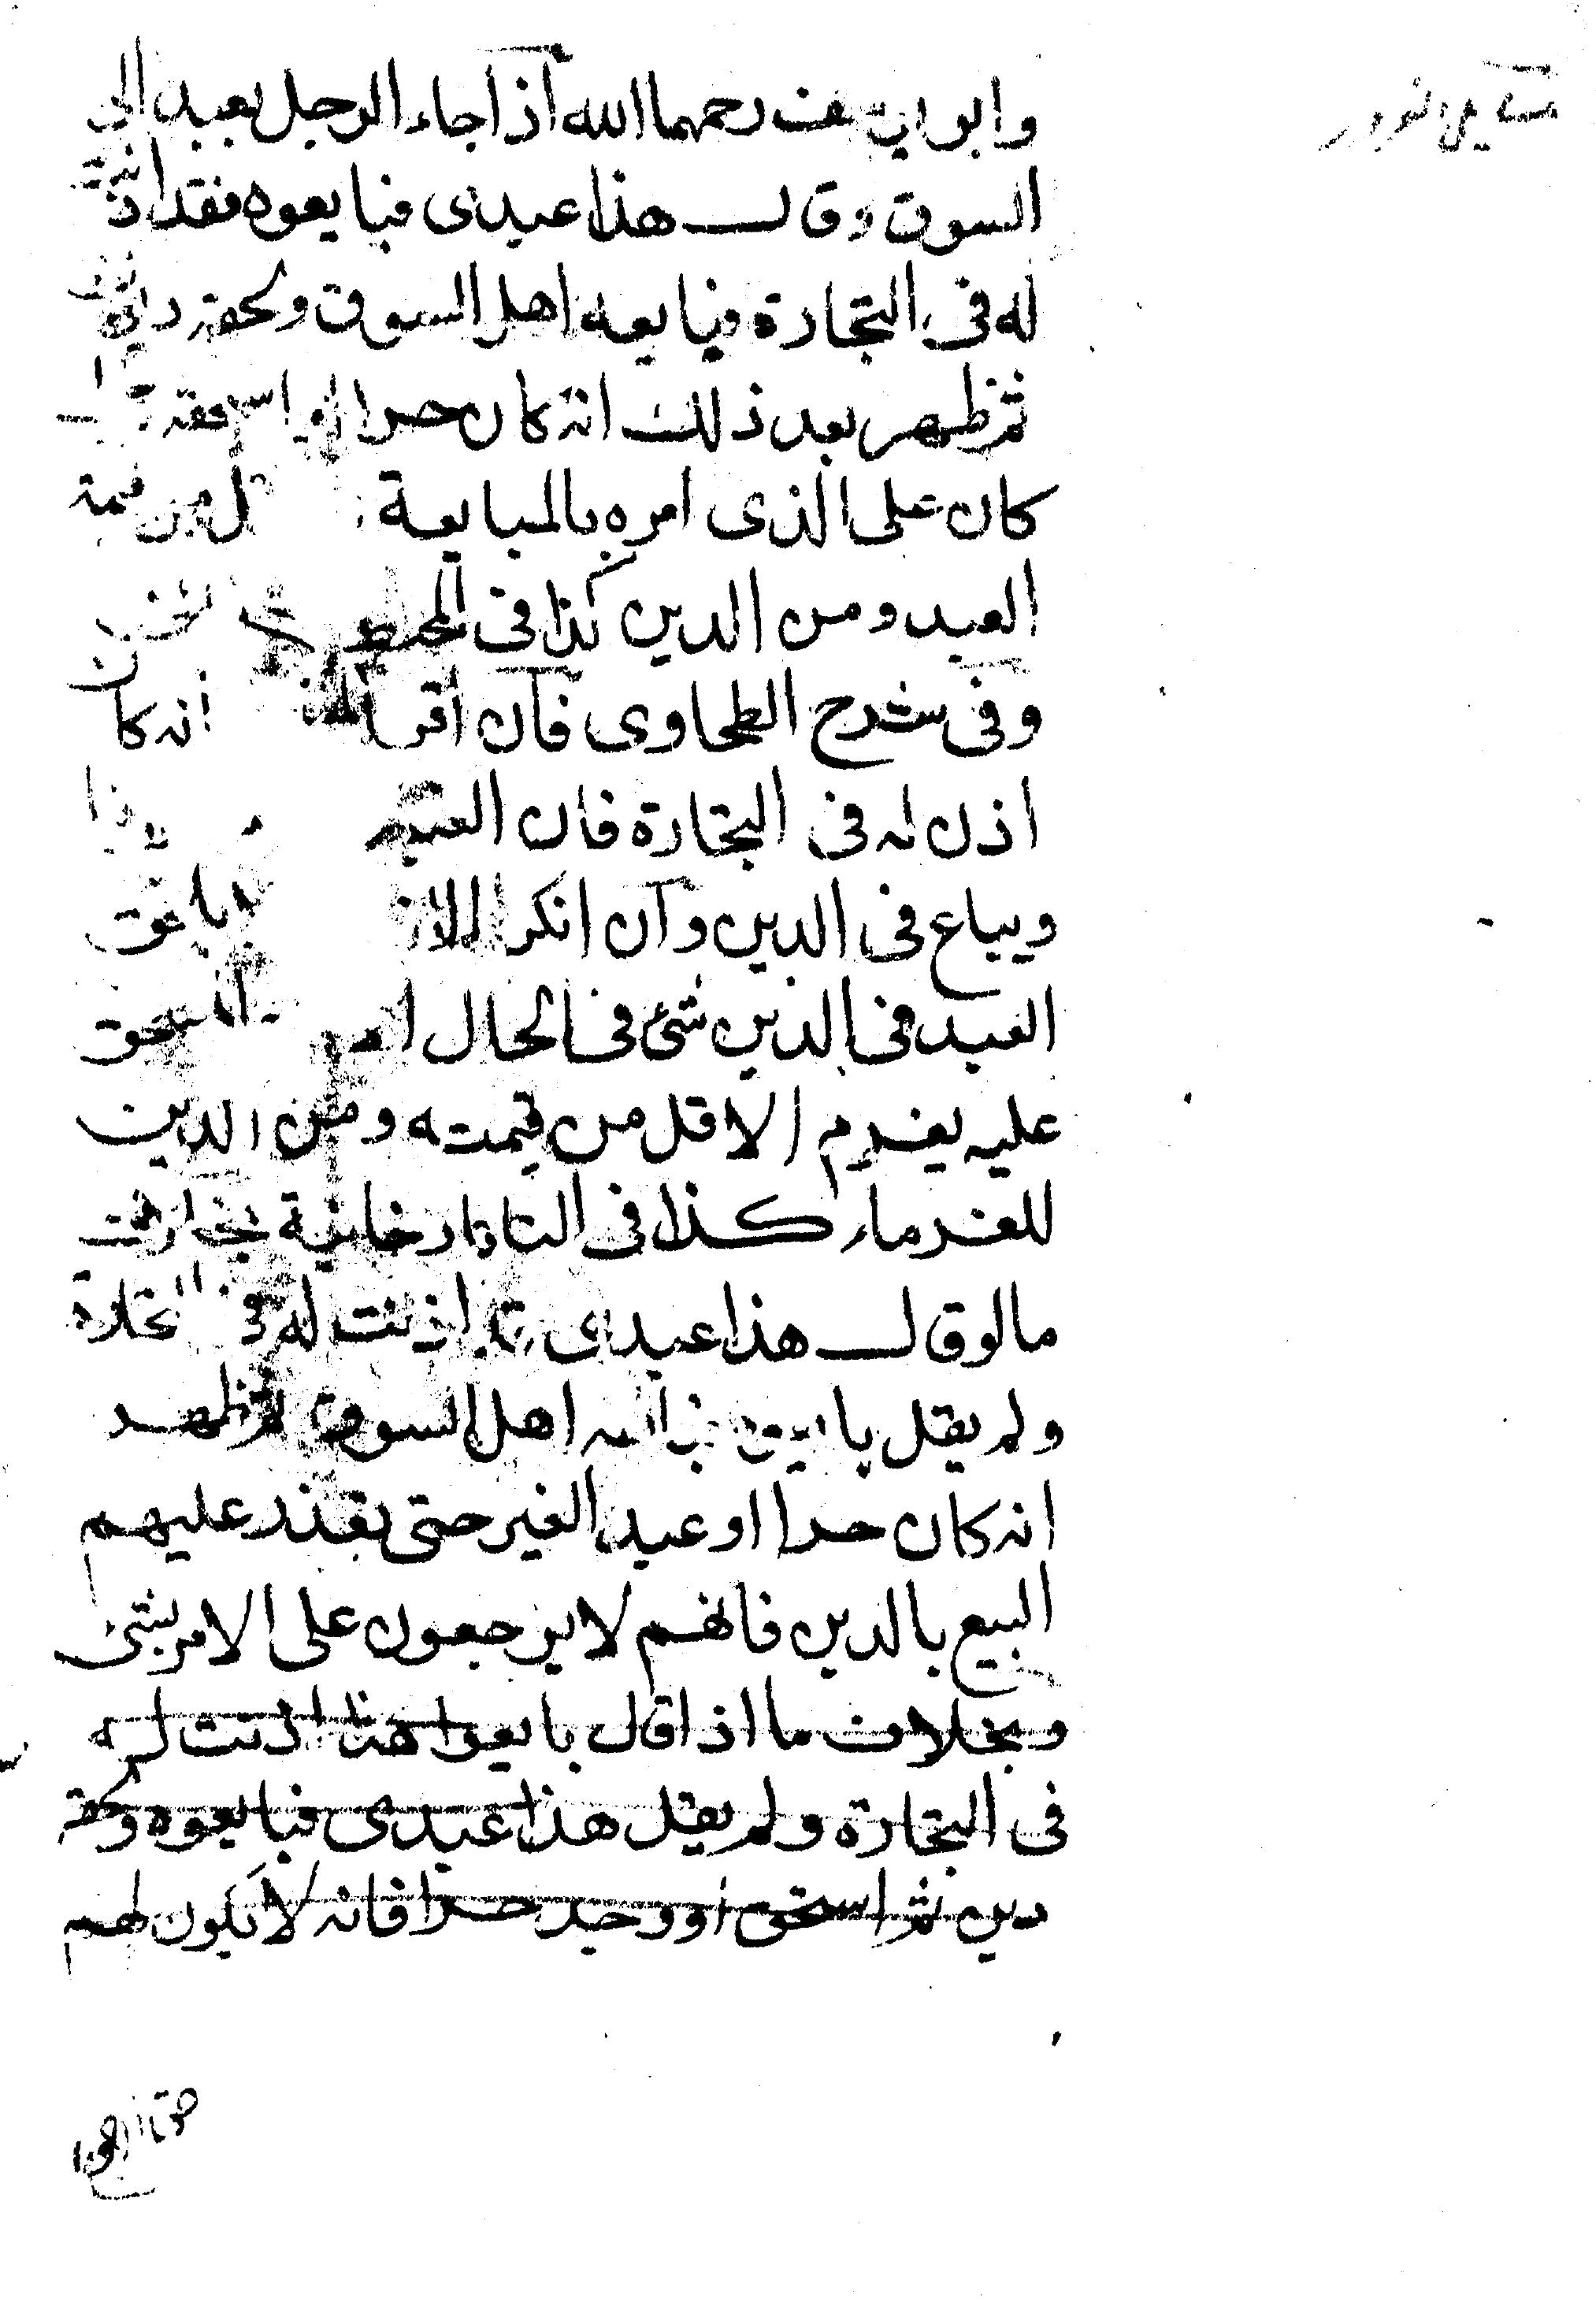 مسايل الغرور
وابو يوسف رحمهما الله اذا جاء الرجل بعبد الى
السوق وقال هذا عبدى فبايعوه فقد اذنت
له فى التجارة فبايعه اهل السوق ولحقه دين
ثم ظهر بعد ذلك انه كان حرا او استحقه
كان على الذى امره بالمبايعة من قيمة
العبد ومن الدين كذا فى المحيط
وفى شرح الطحاوى فان اقر انه كان
اذن له فى التجارة فان العبد
ويباع فى الدين وان انكر
العبد فى الدين شئ فى الحال
عليه يغرم الاقل من قيمته ومن الدين
للغرماء كذا فى التاتارخانية بخلاف
ما لو قال هذا عبدى قد اذنت له فى التجارة
ولم يقل بايعوه فبايعه اهل السوق ثم ظهر
انه كان حرا او عبد الغير حتى تعذر عليهم
البيع بالدين فانهم لا يرجعون على الامر بشئ
وبخلاف ما اذا قال بايعوا هذا اذنت له
فى التجارة ولم يقل هذا عبدى فبايعوه ولحقه
دين ثم استحق او وجد حرا فانه لا يكون لهم